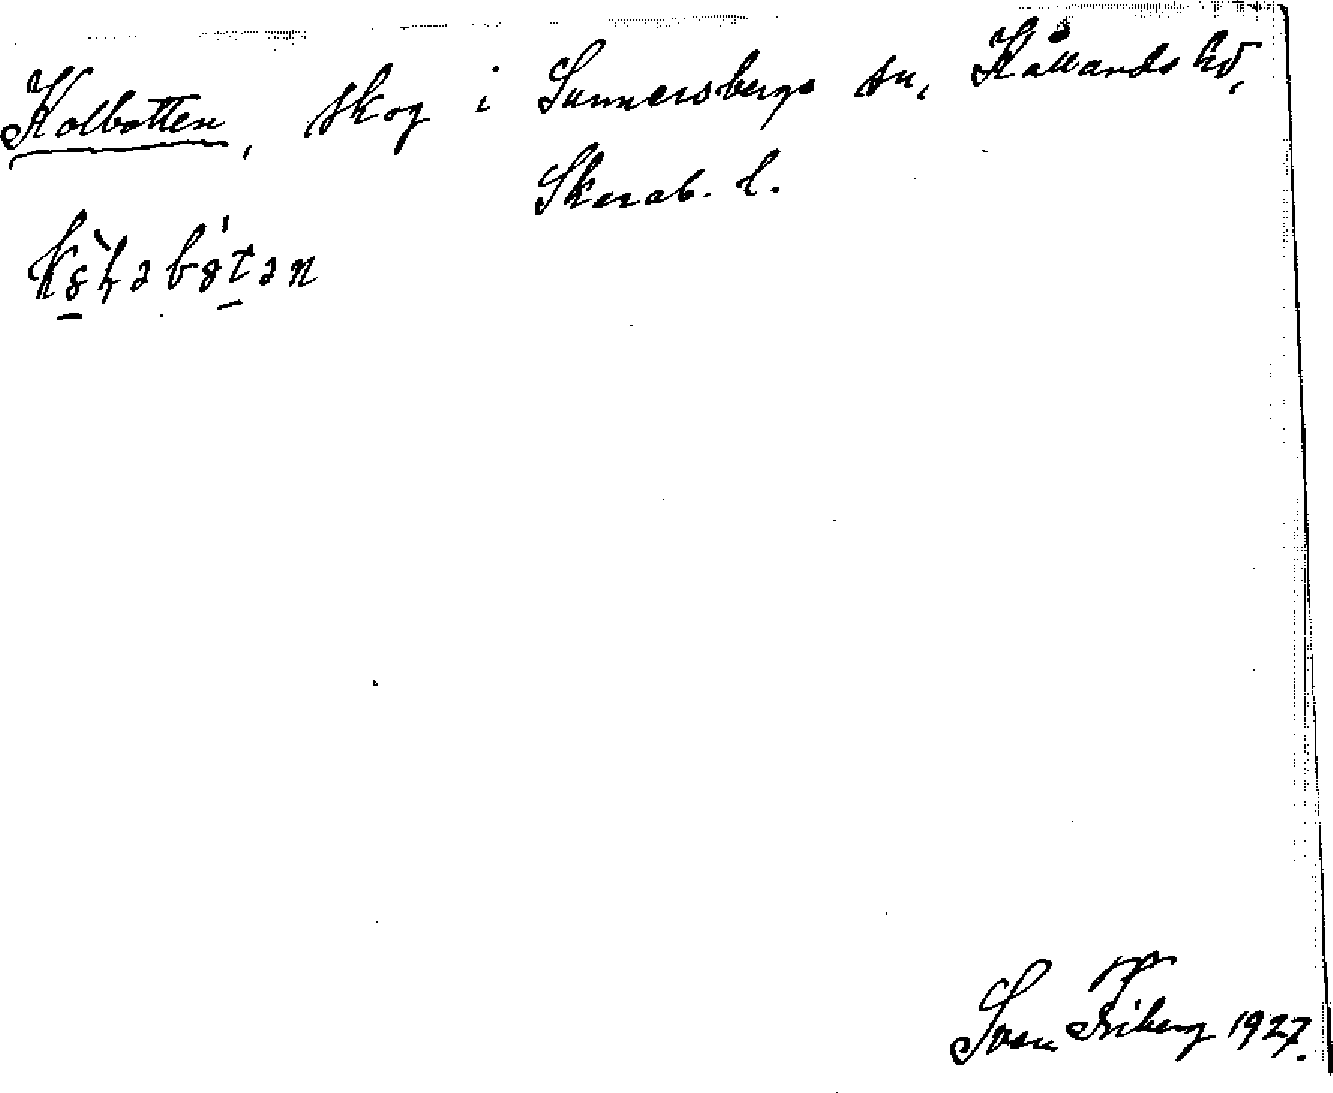 Kolbotten, skog i Sunnersbergs sn, Kållands hd,
Skarab. l.
Sven Friberg 1927.